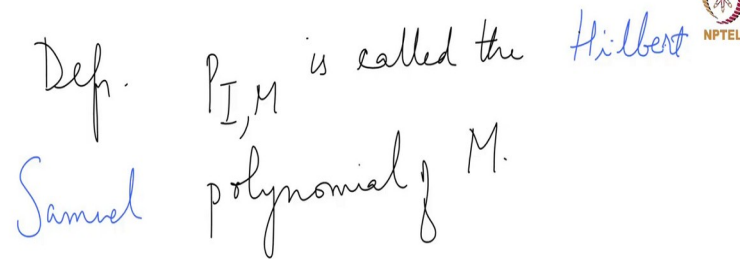 Defn. P_{I,M} is called the Hilbert
Samuel polynomial of M.
NPTEL